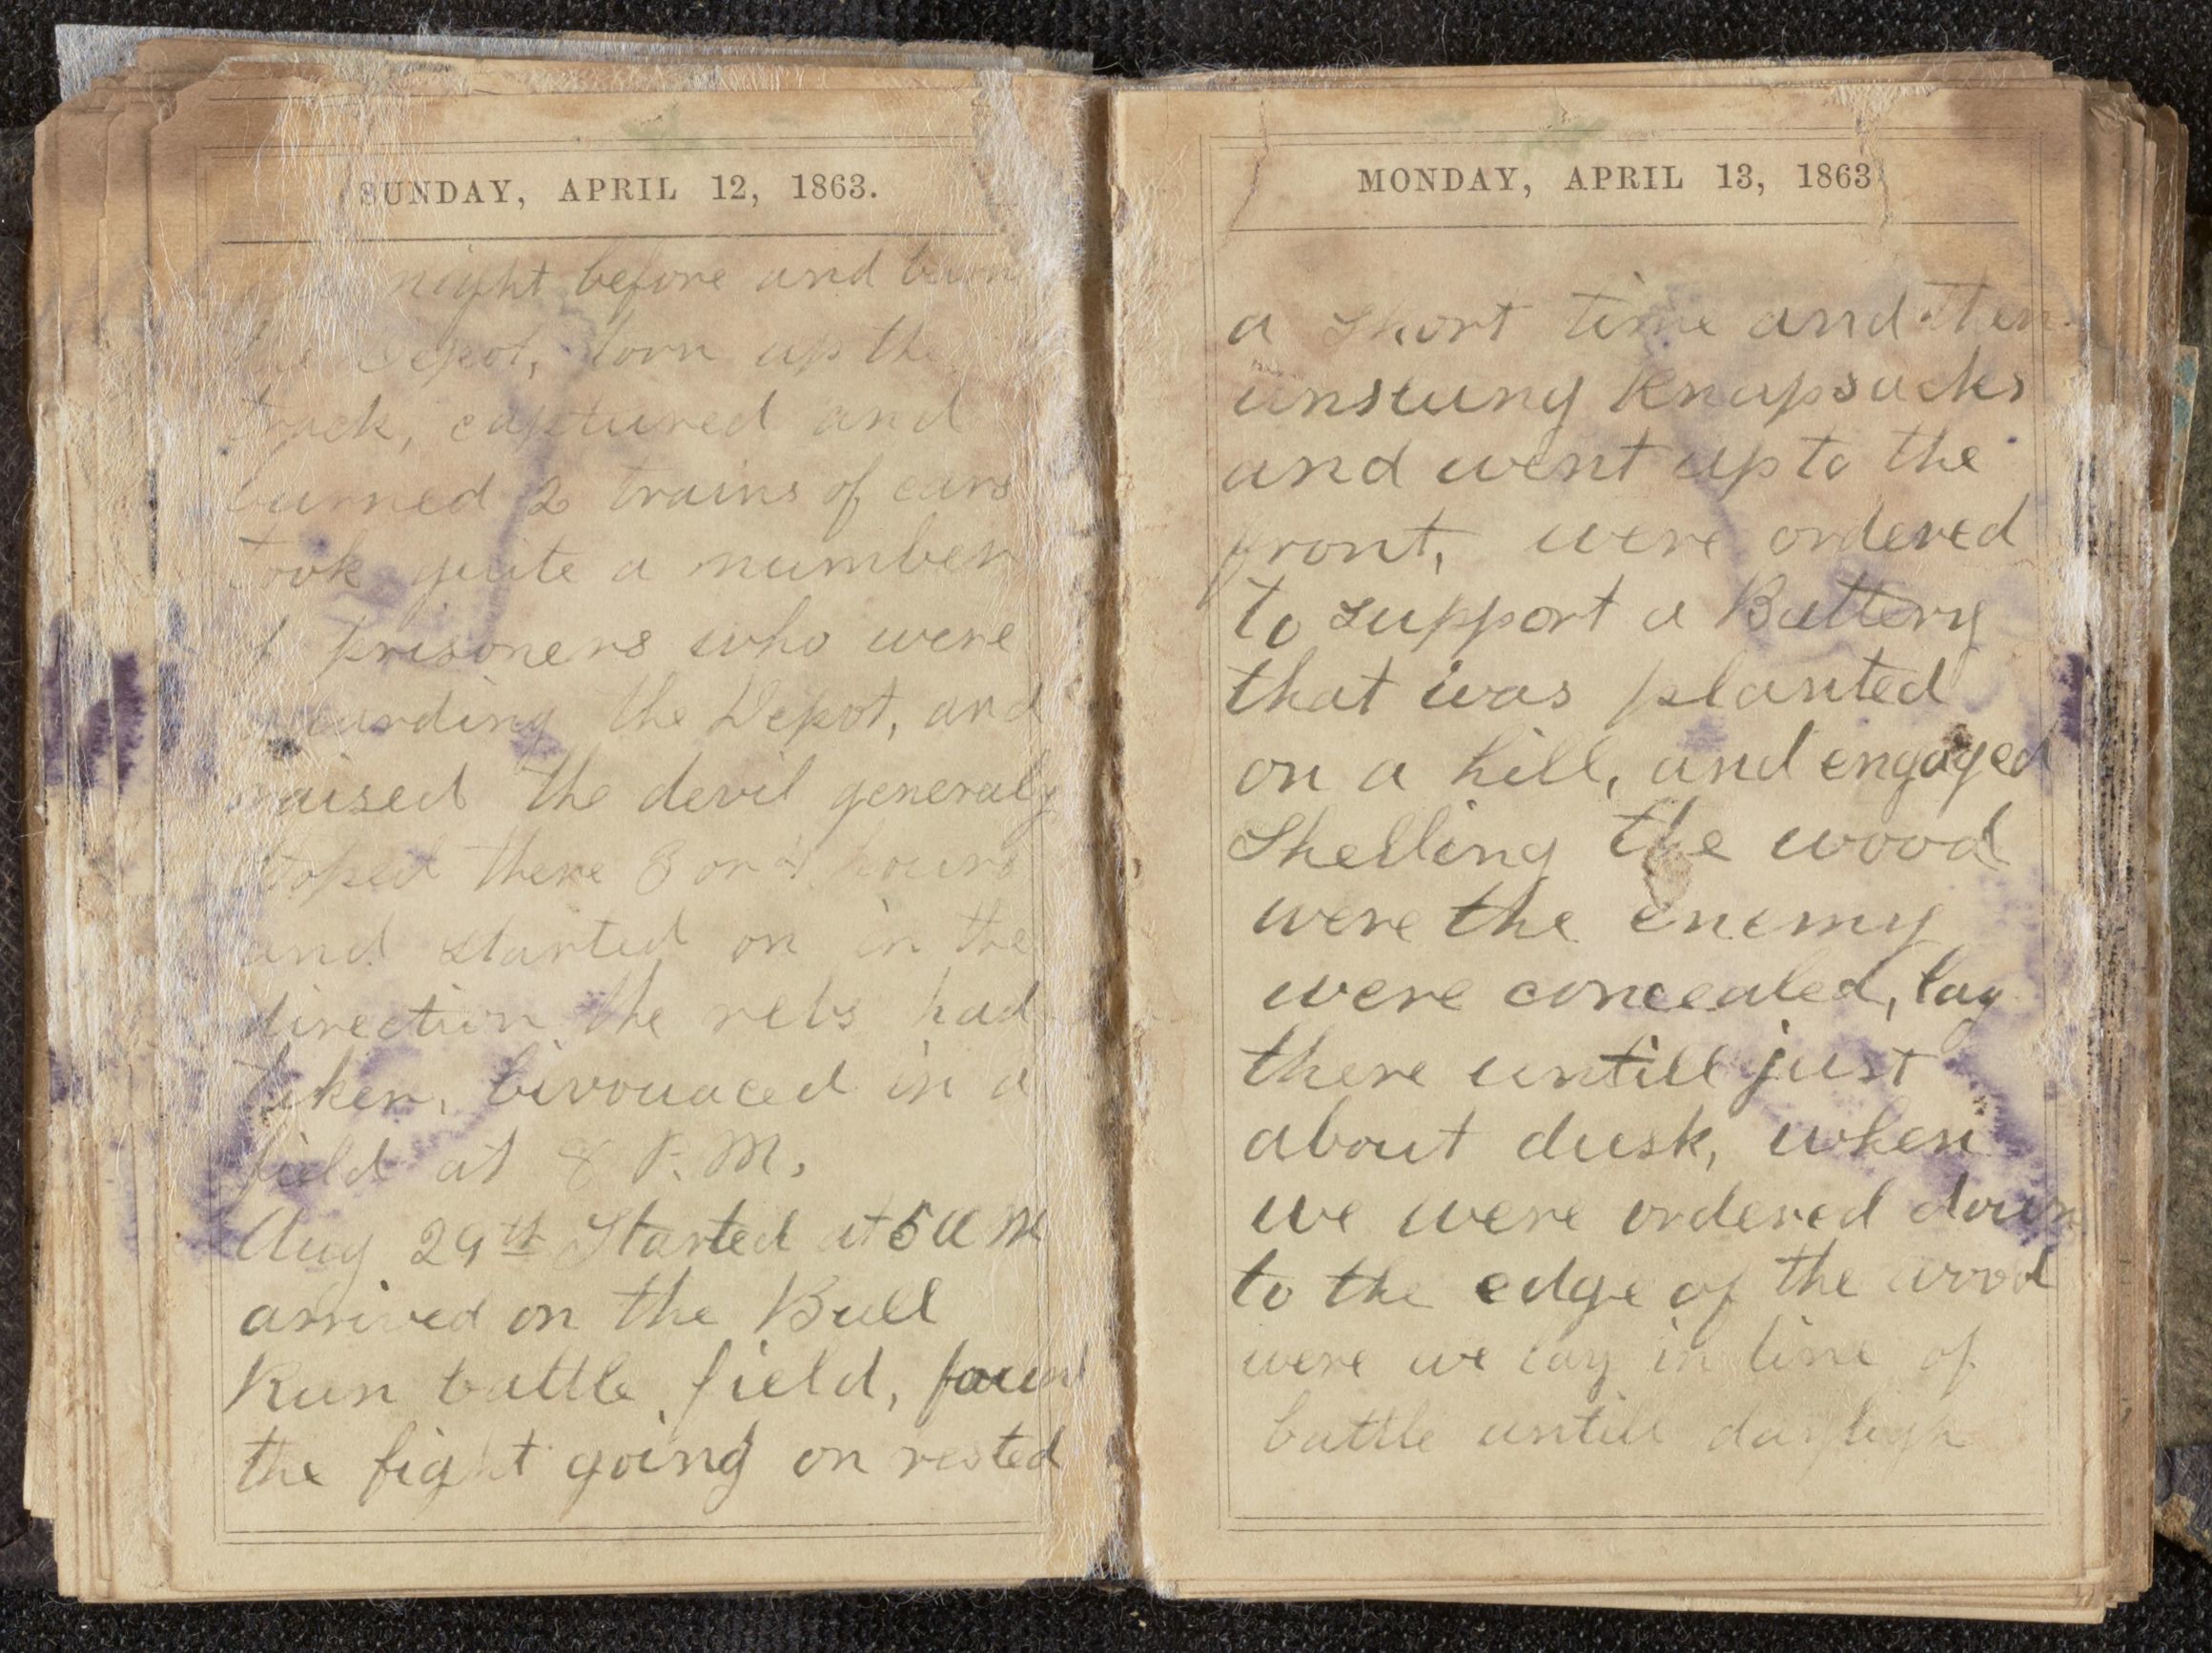 SUNDAY, APRIL 12, 1863.
night before and burn
the Depot, torn up the
track, captured and
burned 2 trains of cars
took quite a number
of prisoners who were
guarding the Depot, and
raised the devil generaly
stoped there 3 or 4 hours
and started on in the
direction the rebs had
taken, bivouaced in a
field at 8 P.M.
Aug 29th Started at 5 A M
arrived on the Bull
Run battle field, found
the fight going on rested
MONDAY, APRIL 13, 1863
a short time and then
unslung Knapsacks
and went up to the
front, were ordered
to support a Battery
that was planted
on a hill, and engaged
Shelling the wood
were the enemy
were concealed, lay
there untill just
about dusk, when
we were ordered down
to the edge of the wood
were we lay in line of
battle untill dayligh